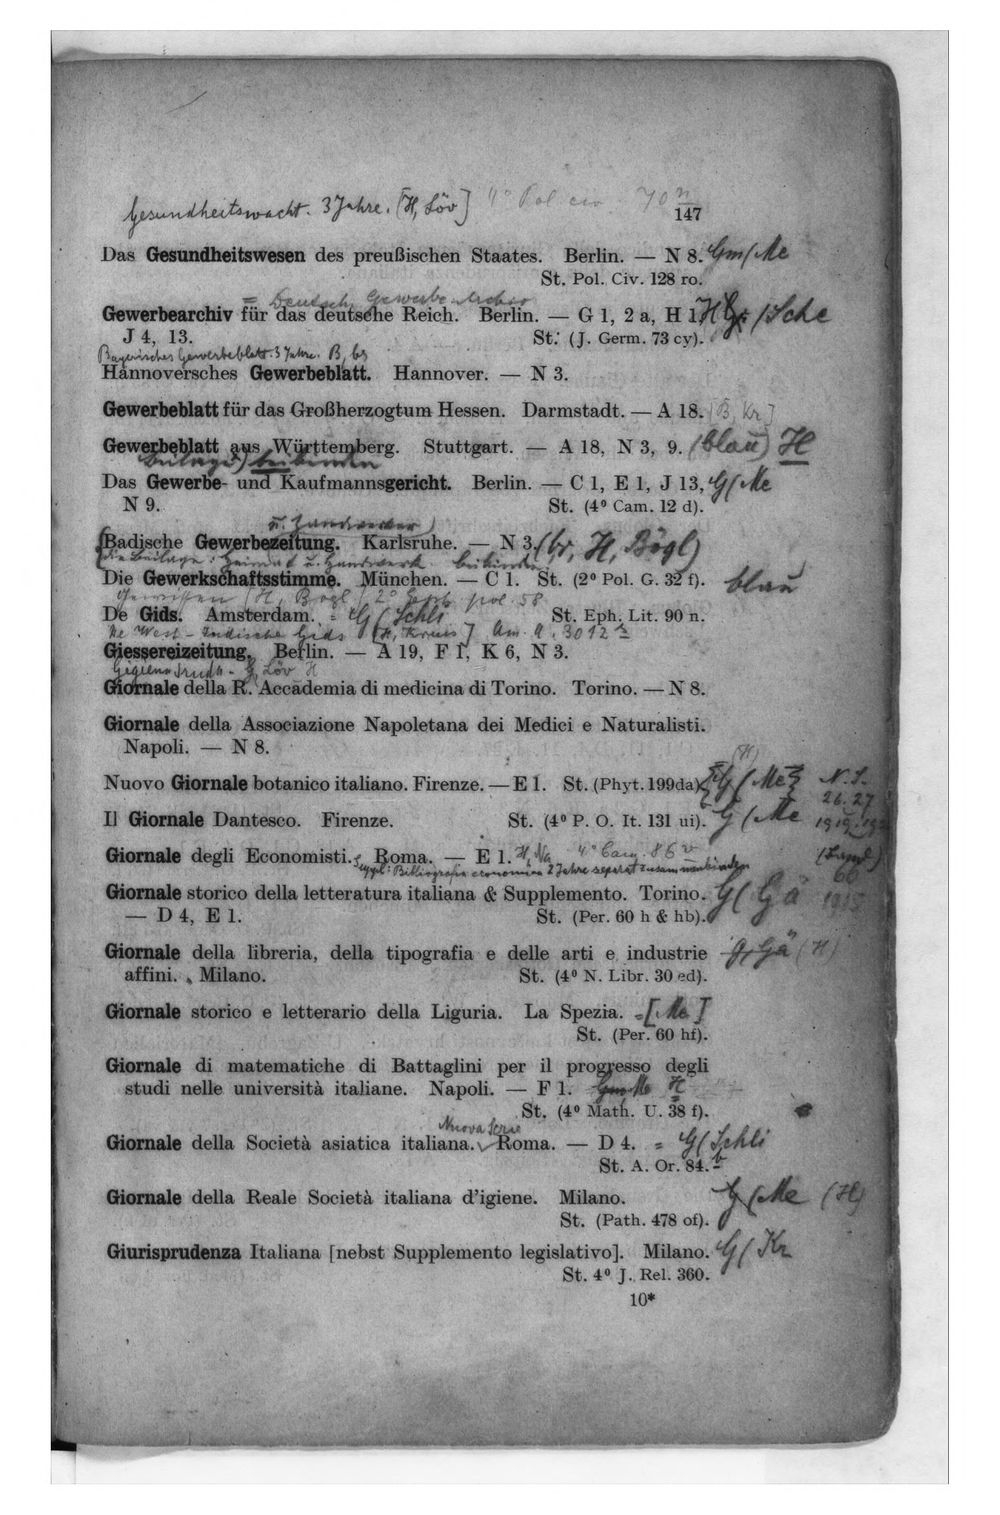 Gesundheitswacht. 3 Jahre. [H, Löv] 4° Pol civ 70 n
147
Das Gesundheitswesen des preußischen Staates. Berlin. — N 8. Gm/Me
St. Pol. Civ. 128 ro.
= Deutsch. Gewerbe-Archiv
Gewerbearchiv für das deutsche Reich. Berlin. — G 1, 2 a, H 1, /Sche
J 4, 13. St. (J. Germ. 73 cy).
Bayerisches Gewerbeblatt. 3 Jahre. B, br
Hannoversches Gewerbeblatt. Hannover. — N 3.
Gewerbeblatt für das Großherzogtum Hessen. Darmstadt. — A 18. [B, Kr]
Gewerbeblatt aus Württemberg. Stuttgart. — A 18, N 3, 9. (blau) H
Beilage) beibinden
Das Gewerbe- und Kaufmannsgericht. Berlin. — C 1, E 1, J 13, G (Me
N 9. St. (4° Cam. 12 d).
u. Handwerker)
Badische Gewerbezeitung. Karlsruhe. — N 3. (br, H, Bögl)
(die Beilage: Heimat u. Handwerk. beibinden
Die Gewerkschaftsstimme. München. — C 1. St. (2° Pol. G. 32 f). blau
Gewissen (H, Bögl) 2° pol. 58
De Gids. Amsterdam. = G (Schli St. Eph. Lit. 90 n.
De West-Indische Gids [H, ] Am. A. 3012
Giessereizeitung. Berlin. — A 19, F 1, K 6, N 3.
Löv H
Giornale della R. Accademia di medicina di Torino. Torino. — N 8.
Giornale della Associazione Napoletana dei Medici e Naturalisti.
Napoli. — N 8.
(H)
Nuovo Giornale botanico italiano. Firenze. — E 1. St. (Phyt. 199da). G (Me N. S.
26. 27
Il Giornale Dantesco. Firenze. St. (4° P. O. It. 131 ui). G (Me
Giornale degli Economisti. Roma. — E 1. H, Na 4° Cam. 86 v
suppl: Bibliografia economica 2 Jahre separat zusammenbinden 66
Giornale storico della letteratura italiana & Supplemento. Torino. G ( Gä 1915
— D 4, E 1. St. (Per. 60 h & hb).
Giornale della libreria, della tipografia e delle arti e industrie g, Gä (H)
affini. Milano. St. (4° N. Libr. 30 ed).
Giornale storico e letterario della Liguria. La Spezia. = [Me]
St. (Per. 60 hf).
Giornale di matematiche di Battaglini per il progresso degli
studi nelle università italiane. Napoli. — F 1. Gm, Me H
St. (4° Math. U. 38 f).
Nuova Serie
Giornale della Società asiatica italiana. Roma. — D 4. = G (Schli
St. A. Or. 84. b
Giornale della Reale Società italiana d'igiene. Milano. G (Me (H)
St. (Path. 478 of).
Giurisprudenza Italiana [nebst Supplemento legislativo]. Milano. G (Kr
St. 4° J. Rel. 360.
10*